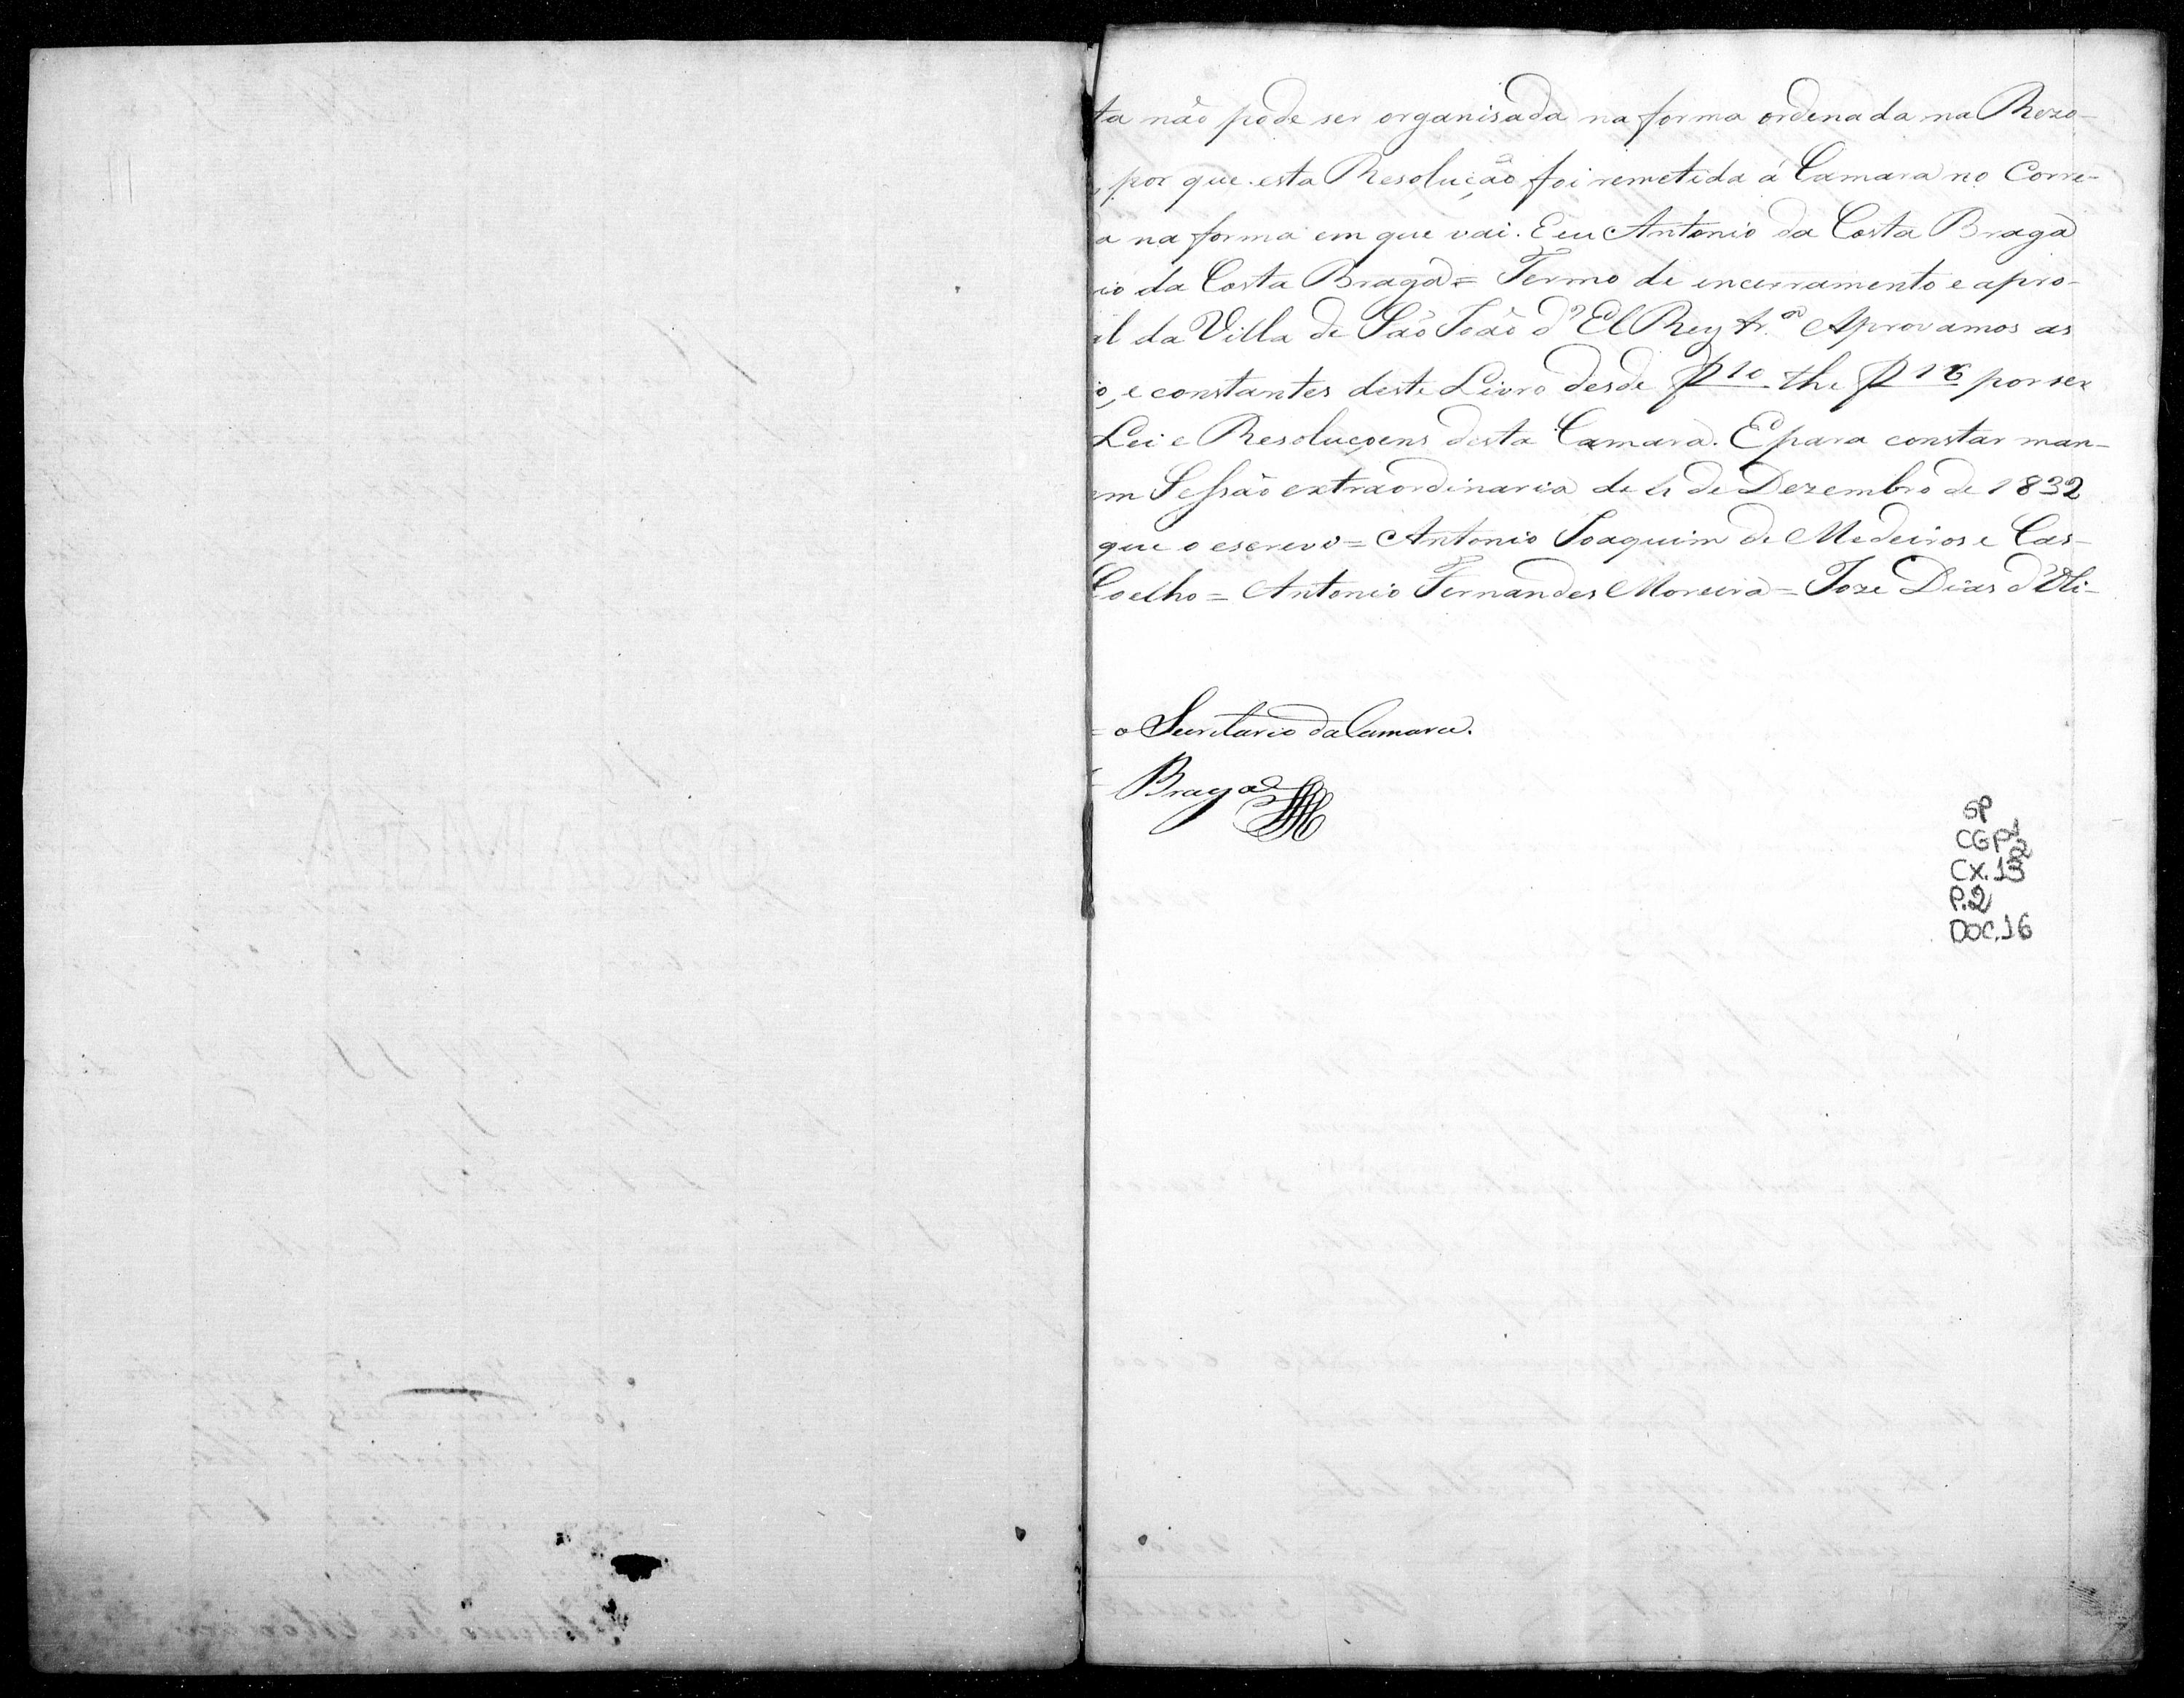 ta não pode ser organisada na forma ordenada na Rezo-
, por que esta Resolução foi remetida á Camara no Corre-
a na forma em que vai. E eu Antonio da Costa Braga
io da Costa Braga = Termo de encerramento e apro-
al da Villa de São João d'El Rey &.ª Aprovamos as
o, e constantes deste Livro desde f 10 the f 16 por ser
Lei e Resoluçoens desta Camara. E para constar man-
em Sessão extraordinaria de 4 de Dezembro de 1832
que o escrevi = Antonio Joaquim de Medeiros e Cas-
Coelho = Antonio Fernandes Moreira = Joze Dias d'Oli-
= o Secretario da Camara.
Braga
SP
CGP 1/2
CX. 13
P.2
DOC. 16